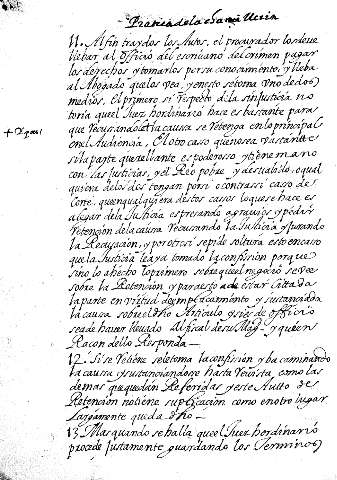 Practica de la
11. Al fin traydos los Autos, el procurador los deve
llebar al officio del escriuano del crimen pagar
los derechos y tomarlos por su conocimiento, y lleba
al Abogado que los vea, y en esto se toma Uno de dos
medios. El primero si respecto de la sin justicia no
toria que el Juez hordinario hace es bastante para
que recusandole la causa se Retenga en lo principal
en el Audiencia, El otro caso que no sea vastante
si la parte querellante es poderoso y tiene mano
con las Justicias, y el Reo pobre y desualido, o qual
quiera de los dos tengan por si o contra si caso de
Corte, que en qualquiera destos casos lo que se hace es
alegar de la Justicia espresando agrauios y pedir
Retencion de la causa Recusando la Justicia y jurando
la Recusacion, y por otrosi se pide soltura en este caso
que la Justicia le aya tomado la confission porque
sino lo a hecho lo primero sobre que el negocio se vee
sobre la Retencion y para esto a de estar Cittada
la parte en virtud de emplacamiento y sustanciada
la causa sobre el dho Articulo y si es de officio
se a de hauer lleuado al fiscal de su Magd. y quien
Racon dello Responda
12. Si se Retiene se le toma la confission y ba caminando
la causa y sustanciandose hasta Reuista, como las
demas que quedan Referidas y este Autto de
Retencion no tiene suplicacion como en otro lugar
largamente queda dho
13. Mas quando se halla que el Juez hordinario
procede justamente guardando los Terminos